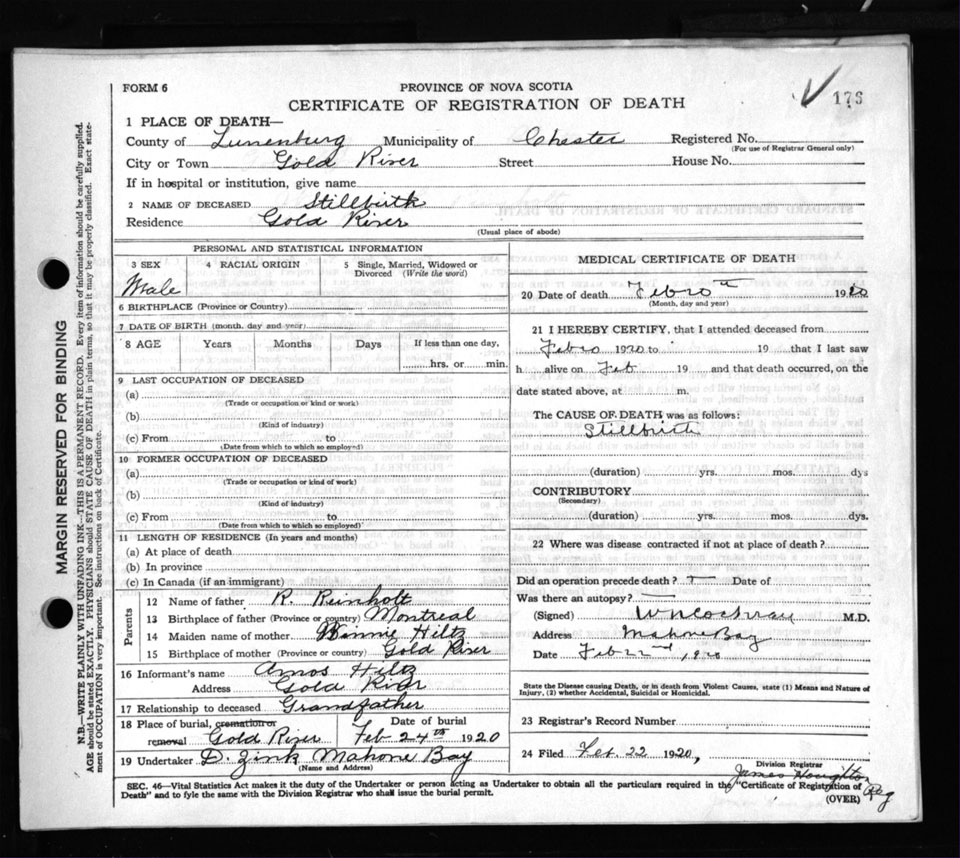 FORM 6
PROVINCE OF NOVA SCOTIA
CERTIFICATE OF REGISTRATION OF DEATH
176
1 PLACE OF DEATH—
County of Lunenburg Municipality of Chester Registered No.
(For use of Registrar General only)
City or Town Gold River Street House No.
If in hospital or institution, give name
2 NAME OF DECEASED Stillbirth
Residence Gold River
(Usual place of abode)
PERSONAL AND STATISTICAL INFORMATION
3 SEX 4 RACIAL ORIGIN 5 Single, Married, Widowed or Divorced (Write the word)
Male
6 BIRTHPLACE (Province or Country)
7 DATE OF BIRTH (month, day and year)
8 AGE Years Months Days If less than one day,
hrs. or min.
9 LAST OCCUPATION OF DECEASED
(a)
(Trade or occupation or kind or work)
(b)
(Kind of industry)
(c) From to
(Date from which to which so employed)
10 FORMER OCCUPATION OF DECEASED
(a)
(Trade or occupation or kind of work)
(b)
(Kind of industry)
(c) From to
(Date from which to which so employed)
11 LENGTH OF RESIDENCE (In years and months)
(a) At place of death
(b) In province
(c) In Canada (if an immigrant)
Parents
12 Name of father R. Reinholt
13 Birthplace of father (Province or country) Montreal
14 Maiden name of mother Winnie Hiltz
15 Birthplace of mother (Province or country) Gold River
16 Informant's name Amos Hiltz
Address Gold River
17 Relationship to deceased Grandfather
18 Place of burial, cremation or removal Gold River
Date of burial Feb 24th 1920
19 Undertaker D. Zink Mahone Bay
(Name and Address)
MEDICAL CERTIFICATE OF DEATH
20 Date of death 1920
(Month, day and year)
21 I HEREBY CERTIFY, that I attended deceased from
1920 to 19 that I last saw
h alive on Feb 19 and that death occurred, on the
date stated above, at m.
The CAUSE OF DEATH was as follows:
Stillbirth
(duration) yrs. mos. dys
CONTRIBUTORY
(Secondary)
(duration) yrs. mos. dys.
22 Where was disease contracted if not at place of death?
Did an operation precede death? Date of
Was there an autopsy?
(Signed) W N Cochran M.D.
Address Mahone Bay
Date Feb 22nd, 1920
State the Disease causing Death, or in death from Violent Causes, state (1) Means and Nature of
Injury, (2) whether Accidental, Suicidal or Homicidal.
23 Registrar's Record Number
24 Filed Feb 22 1920,
Division Registrar
James Houghton Reg
SEC. 46—Vital Statistics Act makes it the duty of the Undertaker or person acting as Undertaker to obtain all the particulars required in the "Certificate of Registration of
Death" and to fyle the same with the Division Registrar who shall issue the burial permit.
(OVER)
MARGIN RESERVED FOR BINDING
N.B.—WRITE PLAINLY WITH UNFADING INK—THIS IS A PERMANENT RECORD. Every item of information should be carefully supplied.
AGE should be stated EXACTLY. PHYSICIANS should STATE CAUSE OF DEATH in plain terms, so that it may be properly classified. Exact state-
ment of OCCUPATION is very important. See instructions on back of Certificate.